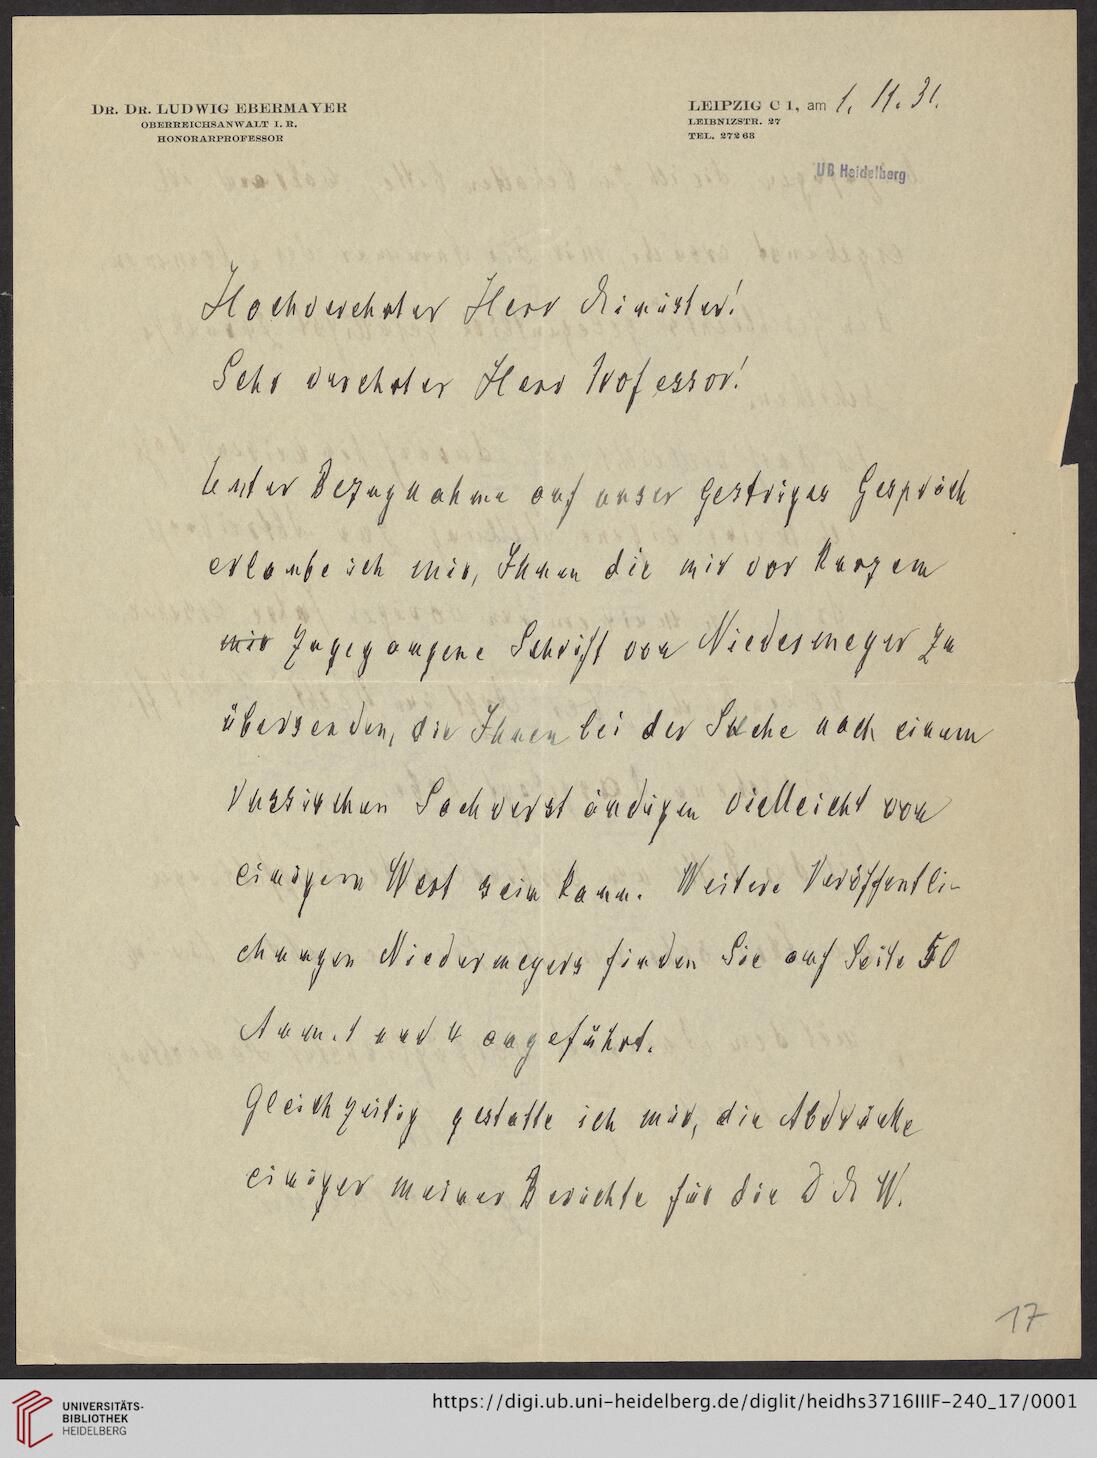 DR. DR. LUDWIG EBERMAYER
OBERREICHSANWALT I. R.
HONORARPROFESSOR
LEIPZIG C 1, am 1. 11. 31.
LEIBNIZSTR. 27
TEL. 27268
UB Heidelberg
Hochverehrter Herr Minister!
Sehr verehrter Herr Professor!
Unter Bezugnahme auf unser gestriges Gespräch
erlaube ich mir, Ihnen die mir vor kurzem
mir zugegangene Schrift von Niedermeyer zu
übersenden, die Ihnen bei der Suche nach einem
russischen Sachverständigen vielleicht von
einigem Wert sein kann. Weitere Veröffentli-
chungen Niedermeyers finden Sie auf Seite 50
Anm. 1 und 4 angeführt.
Gleichzeitig gestatte ich mir, die Abdrücke
einiger meiner Berichte für die D M W.
17
UNIVERSITÄTS-
BIBLIOTHEK
HEIDELBERG
https://digi.ub.uni-heidelberg.de/diglit/heidhs3716IIIF-240_17/0001